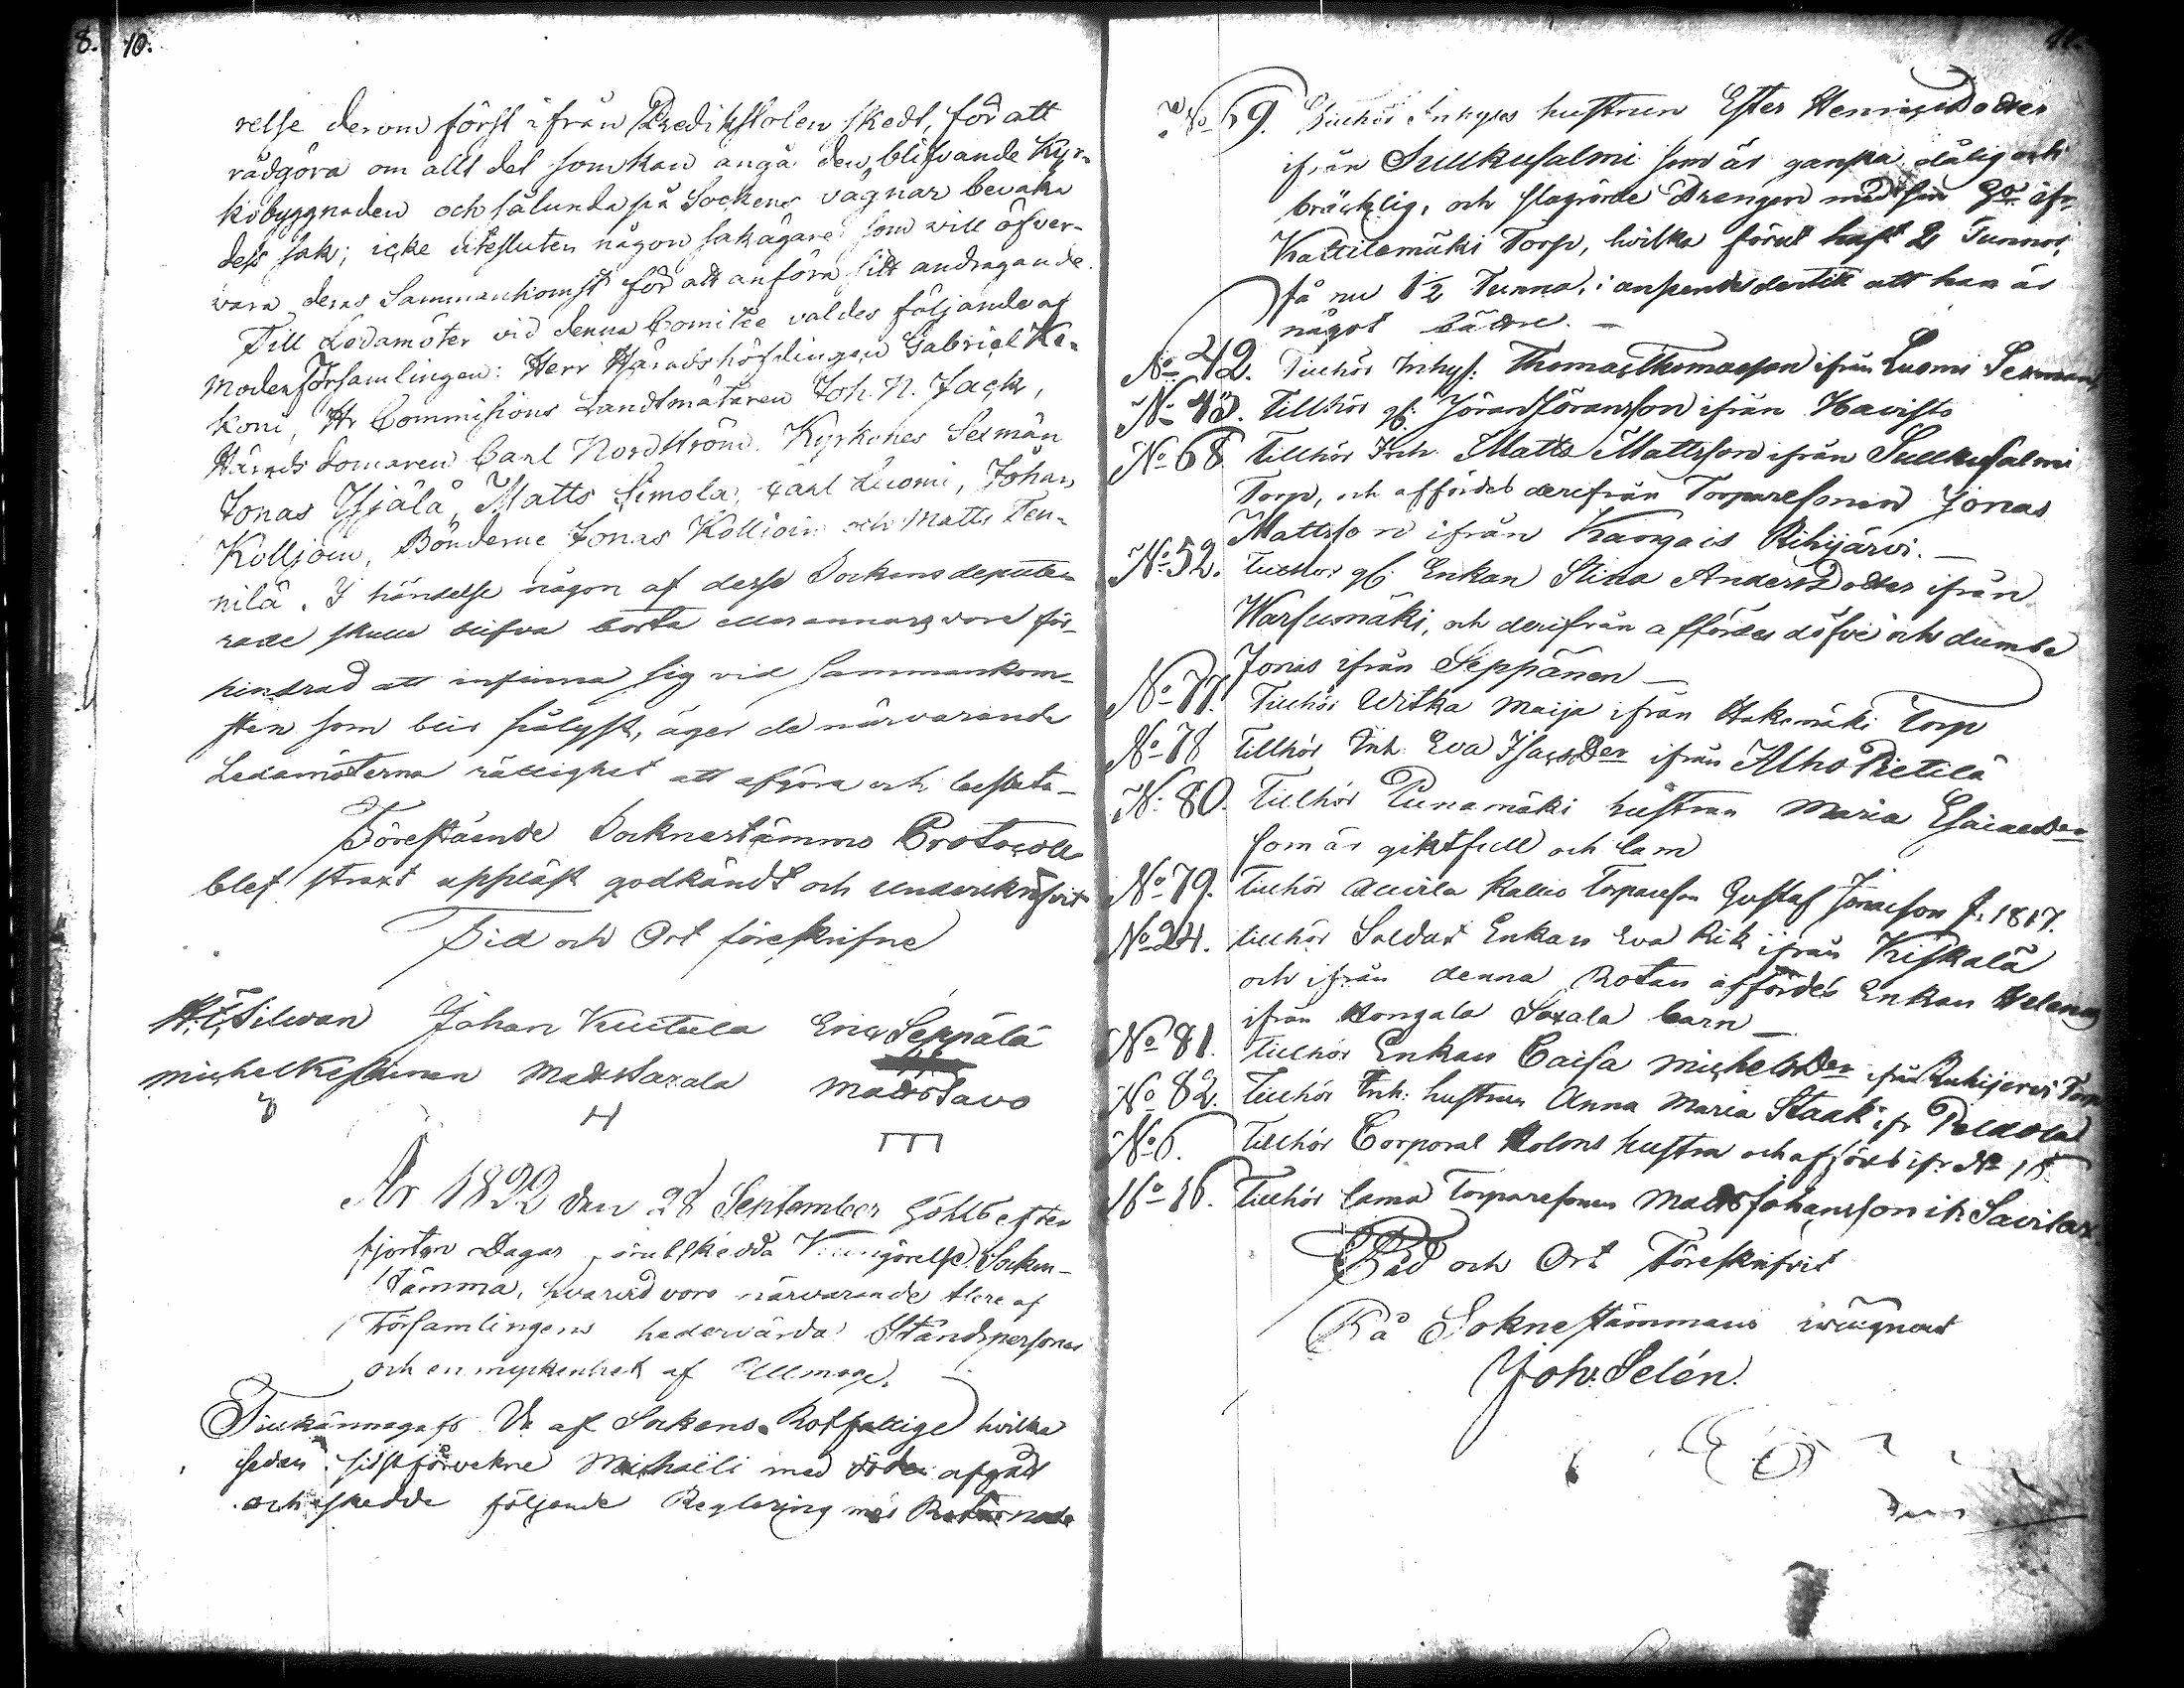 8. 10.
relse derom först ifrån Predikstolen skedt, för att
rådgöra om allt det som kan angå den blifvande Kyr-
kobyggnaden och sålunda på Sockens vägnar bevaka
dess sak; icke utesluten någon sakägare som will öfver-
vara deras Sammankomst för att anföra sitt andragande.
Till Ledamöter vid denna Comitée valdes följande af
Moderförsamlingen: Herr Häradshöfdingen Gabriel Ke-
koni, Hr Commissions Landtmätaren Joh. N. Jack,
Härads domaren Carl Nordström. Kyrkones Sexmän
Jonas Yjälä, Matts Simola, Carl Luomi, Johan
Kolljoin, Bönderne Jonas Kollioin och Matts Ten-
nilä. I händelse någon af desse Sockens depute-
rade skulle blifva borta eller annars vore för-
hindrad att infinna sig vid sammankom-
sten som blir pålyst, äger de närvarande
Ledamöterna rättighet att afgöra och besluta -
Förestående Socknestämmo Protocoll
blef straxt uppläst godkändt och underskrifvit
Tid och Ort föreskrifne
Silwan Johan Kuitula Eric Seppälä
Michel Keskinen Matts Saxala Matts Savo
År 1822 den 28 September hölts efter
fjorton Dagar förut skedda Kungörelse Socken-
stämma, hvarvid voro närvarande flere af
Församlingens hedervärda Ståndspersoner
och en myckenhet af Allmoge.
Tillkännagafs De af Sockens Rotfattige hvilka
sedan sistförvekne Michaëli med döden afgådt
och skedde följande Reglering med
No 59. Tillhör Inhyses hustrun Ester HenricsDotter
ifrån Sulkusalmi som är ganska dålig och
bräcklig, och slagrörde Drengen med ifr
Kattilamäki Torp, hvilka förut haft 2 Tunnor,
få nu 1½ Tunna, i anseende dertill att han är
något bättre. -
No 42. Tillhör Inhys: Thomas Thomasson ifrån Luomi
No 43. Tillhör Jöran Jöransson ifrån Havisto
No 68 Tillhör Inh. Matts Mattsson ifrån Sulkusalmi
Torp, och affördes derifrån Torparesonen Jonas
Mattsson ifrån Kangais Rihijärvi. -
No 52. Tillhör Enkan Stina AndersDotter ifrån
Warsumäki, och derifrån affördes döfve och dumbe
Jonas ifrån Seppänen -
No 77. Tillhör Witka Maija ifrån Hakamäki Torp
No 78 Tillhör Inh. Eva IsacsDer ifrån Alho Pietilä
No 80. Tillhör Punamäki hustrun Maria EsaiaeDer
som är giktfull och lam
No 79. Tillhör Kallio Torpareson Gustaf Jöransson f. 1817.
No 24. tillhör Soldat Enkan Eva Rik ifrån Kiskalä
och ifrån denna Rotan affördes Enkan Helena
ifrån Hongala Saxala barn -
No 81. tillhör Enkan Caisa MichelsDer ifrån Torp
No 82. Tillhör Inh: hustrun Anna Maria Staak ifr Peldola
No 6. Tillhör Corporal Holms hustru och afförd ifr No 15.
No 16. Tillhör lama Torparesonen Matts Johansson ifr
Tid och Ort Föreskrifvit
På Soknestämmans vägnar
Joh: Selén.